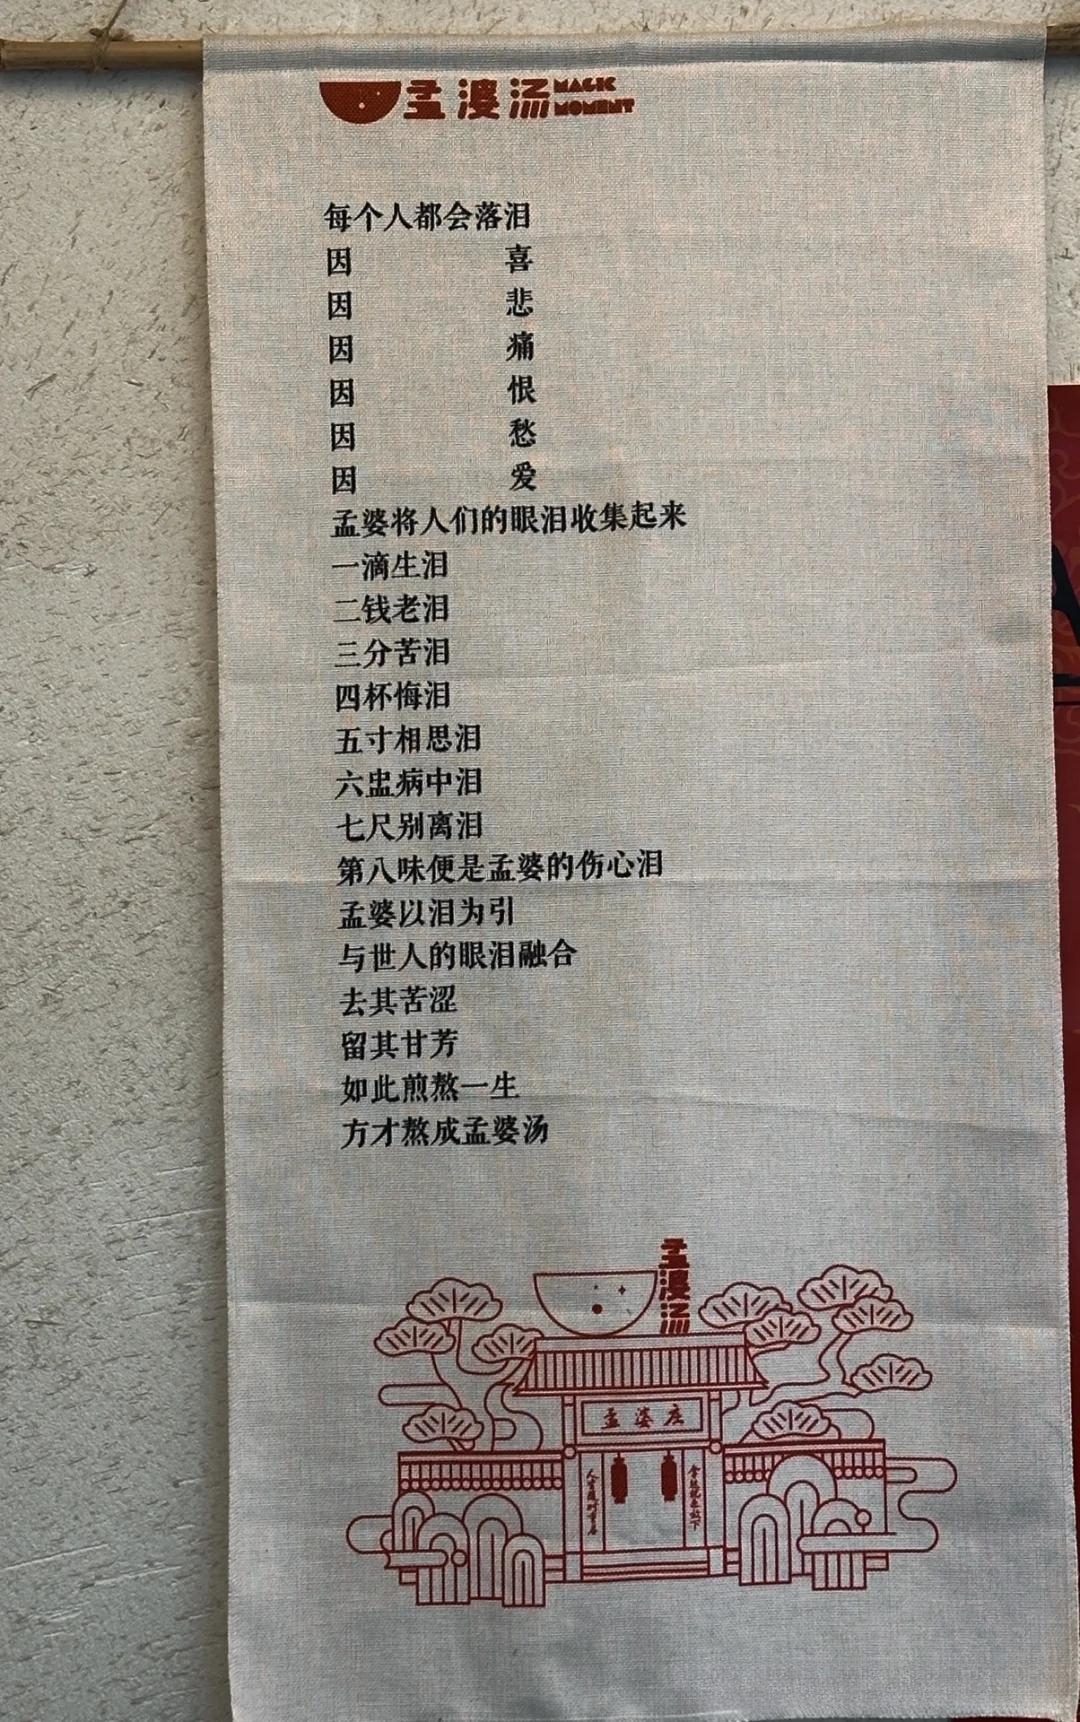 孟婆汤 MAGIC MOMENT
每个人都会落泪
因 喜
因 悲
因 痛
因 恨
因 愁
因 爱
孟婆将人们的眼泪收集起来
一滴生泪
二钱老泪
三分苦泪
四杯悔泪
五寸相思泪
六盅病中泪
七尺别离泪
第八味便是孟婆的伤心泪
孟婆以泪为引
与世人的眼泪融合
去其苦涩
留其甘芳
如此煎熬一生
方才熬成孟婆汤
孟婆汤
孟婆庄